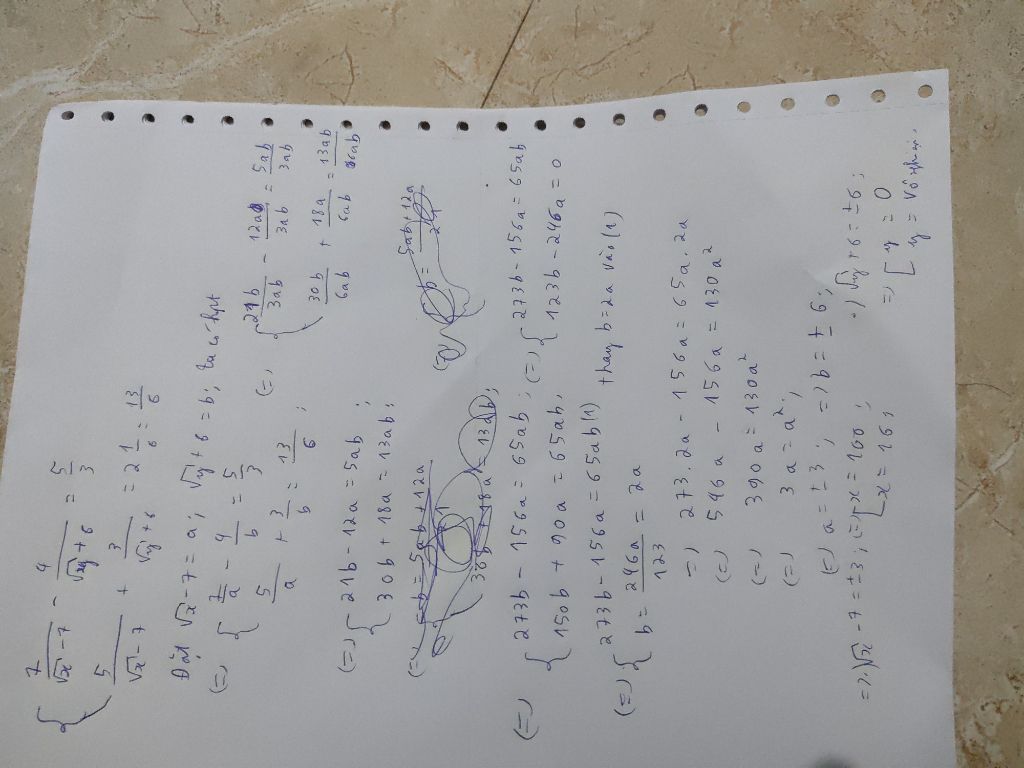 { 7/(√x - 7) - 4/(√y + 6) = 5/3
5/(√x - 7) + 3/(√y + 6) = 2 1/6 = 13/6
Đặt √x - 7 = a; √y + 6 = b; ta có hpt
(=) { 7/a - 4/b = 5/3
5/a + 3/b = 13/6;
(=) { 21b/3ab - 12a/3ab = 5ab/3ab
30b/6ab + 18a/6ab = 13ab/6ab
(=) { 21b - 12a = 5ab;
30b + 18a = 13ab;
(=) { 273b - 156a = 65ab;
150b + 90a = 65ab;
(=) { 273b - 156a = 65ab
123b - 246a = 0
(=) { 273b - 156a = 65ab (1)
b = 246a/123 = 2a
thay b = 2a vào (1)
=) 273.2a - 156a = 65a.2a
(=) 546a - 156a = 130a²
(=) 390a = 130a²
(=) 3a = a²;
(=) a = ±3; =) b = ±6;
=) √x - 7 = ±3; (=) [ x = 100;
x = 16;
=) √y + 6 = ±6;
=) [ y = 0
y = vô nghiệm.